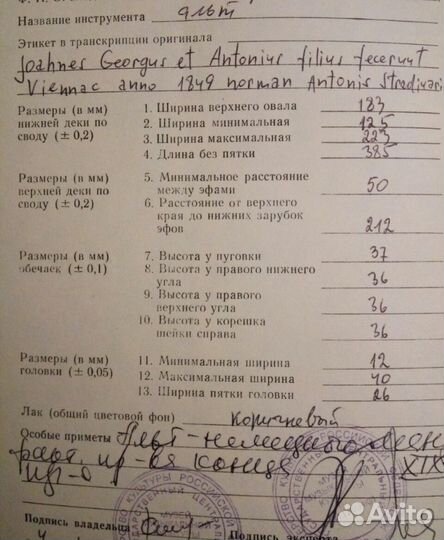 Название инструмента альт
Этикет в транскрипции оригинала
Joahnes Georgus et Antonius filius fecerunt
Viennac anno 1849 norman Antonis Stradivari
Размеры (в мм) нижней деки по своду (± 0,2)
1. Ширина верхнего овала 183
2. Ширина минимальная 125
3. Ширина максимальная 223
4. Длина без пятки 385
Размеры (в мм) верхней деки по своду (± 0,2)
5. Минимальное расстояние между эфами 50
6. Расстояние от верхнего края до нижних зарубок эфов 212
Размеры (в мм) обечаек (± 0,1)
7. Высота у пуговки 37
8. Высота у правого нижнего угла 36
9. Высота у правого верхнего угла 36
10. Высота у корешка шейки справа 36
Размеры (в мм) головки (± 0,05)
11. Минимальная ширина 12
12. Максимальная ширина 40
13. Ширина пятки головки 26
Лак (общий цветовой фон) коричневый
Особые приметы Альт-немецкого
конца XIX
Подпись владельца
Подпись эксперта
Avito